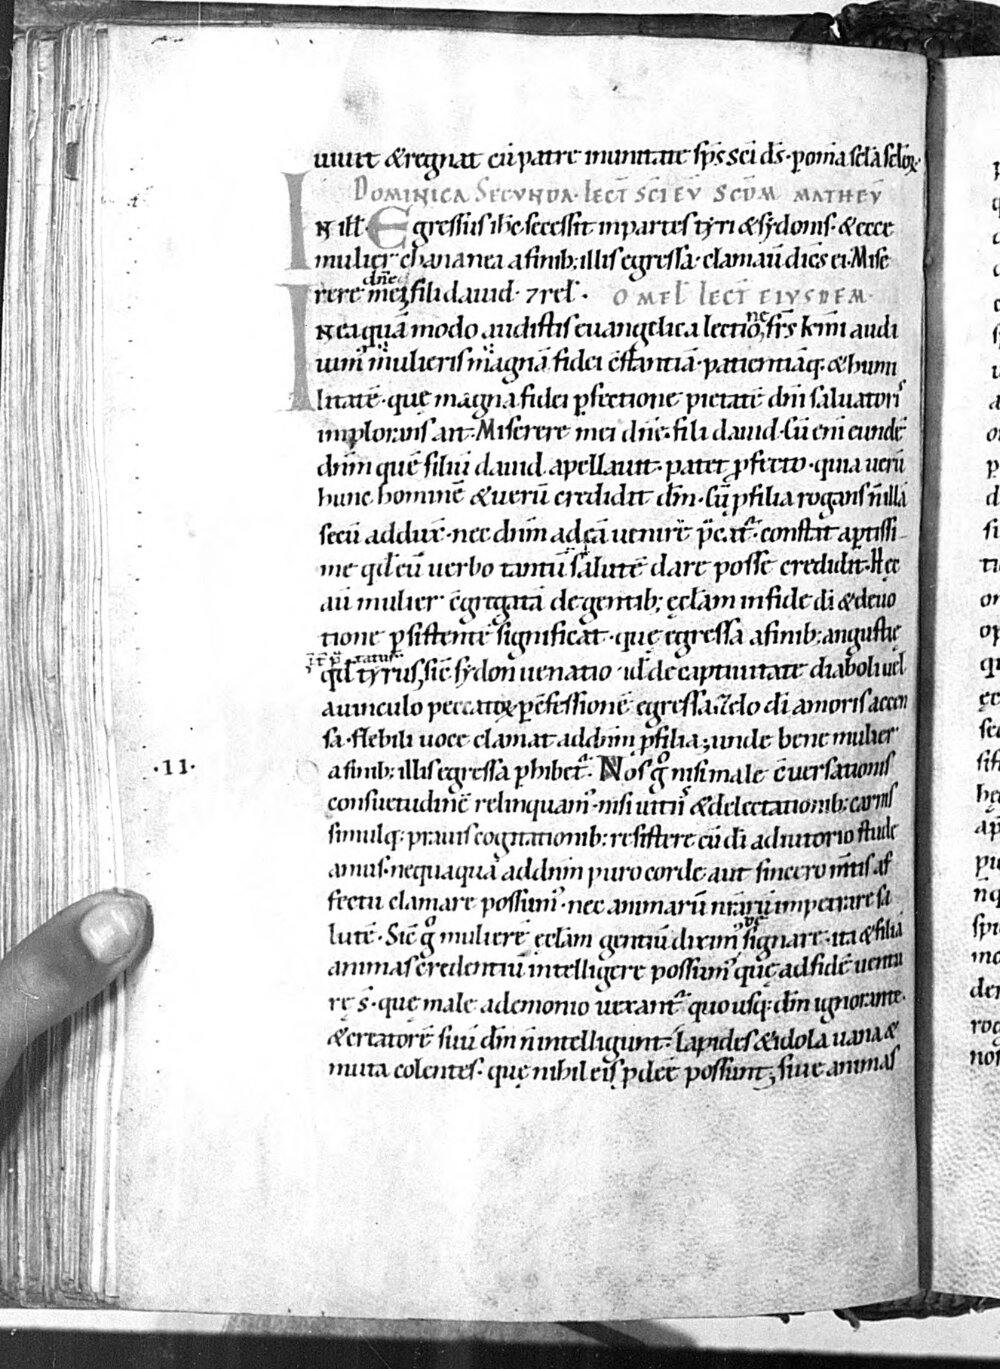 uiuit & regnat cū patre in unitate sp̄s sc̄i d̄s · p om̄ia scl̄a scl̄oꝝ·
DOMINICA SECUNDA · LECT SC̄I EV̄ SCDM MATHEV
IN ill̄. Egressus ih̄c secessit in partes tyri & sydonis · & ecce
mulier chananea a finib; illis egressa · clamaū dicēs ei · Mise
rere mei dn̄e fili dauid · ⁊ rel̄ · OMEL̄ LECT EIUSDEM ·
IN ea quā modo audistis euangelica lectione, fr̄s k̄mi audi
uim᷒ mulieris magnā fidei c̄stantiā · patientiāq; & humi
litatē · quę magna fidei ꝑfectione pietatē dn̄i saluatoris
implorans ait · Miserere mei dn̄e · fili dauid · Cū eni eundē
dn̄m quē filiū dauid apellauit · patet ꝑfecto · quia uerū
hunc hominē & uerū credidit dm̄ · Cū ꝑ filia rogans n̄ illā
secū adduxit · nec dn̄m ad eā uenire p̄cat᷑ · constat aꝑtissi
me qd̄ eū uerbo tantū salutē dare posse credidit · Hęc
aū mulier c̄gregatā de gentib; ęcl̄am in fide d̄i & deuo
tione ꝑsistentē significat · quę egressa a finib; angustię
qd̄ tyrus, sic̄ sydon uenatio · ul̄ de captiuitate diaboli uel
a uinculo peccatoꝝ ꝑ c̄fessionē egressa, zelo d̄i amoris accen
sa · flebili uoce clamat ad dn̄m ꝑ filia; unde bene mulier
a finib; illis egressa ꝑhibet᷑. Nos gͦ nisi male c̄uersationis
·11·
consuetudinē relinquam᷒ · nisi uitiis & delectationib; carnis
simulq; prauis cogitationib; resistere cū d̄i adiutorio stude
amus · nequaquā ad dn̄m puro corde aut sincero m̄tis af
fectu clamare possum᷒ · nec animarū nr̄arū impetrare sa
lutē · Sic̄ gͦ mulierē ęcl̄am gentiū dixim᷒ signare · ita & filiā
animas credentiū intelligere possum᷒ quę ad fidē uentu
rę s̄ · quę male a demonio uexant᷑ quousq; dm̄ ignorante·
& creatorē suū dm̄ n̄ intelligunt · Lapides & idola uana &
muta colentes · quę nihil eis ꝓdee possunt; siue animas